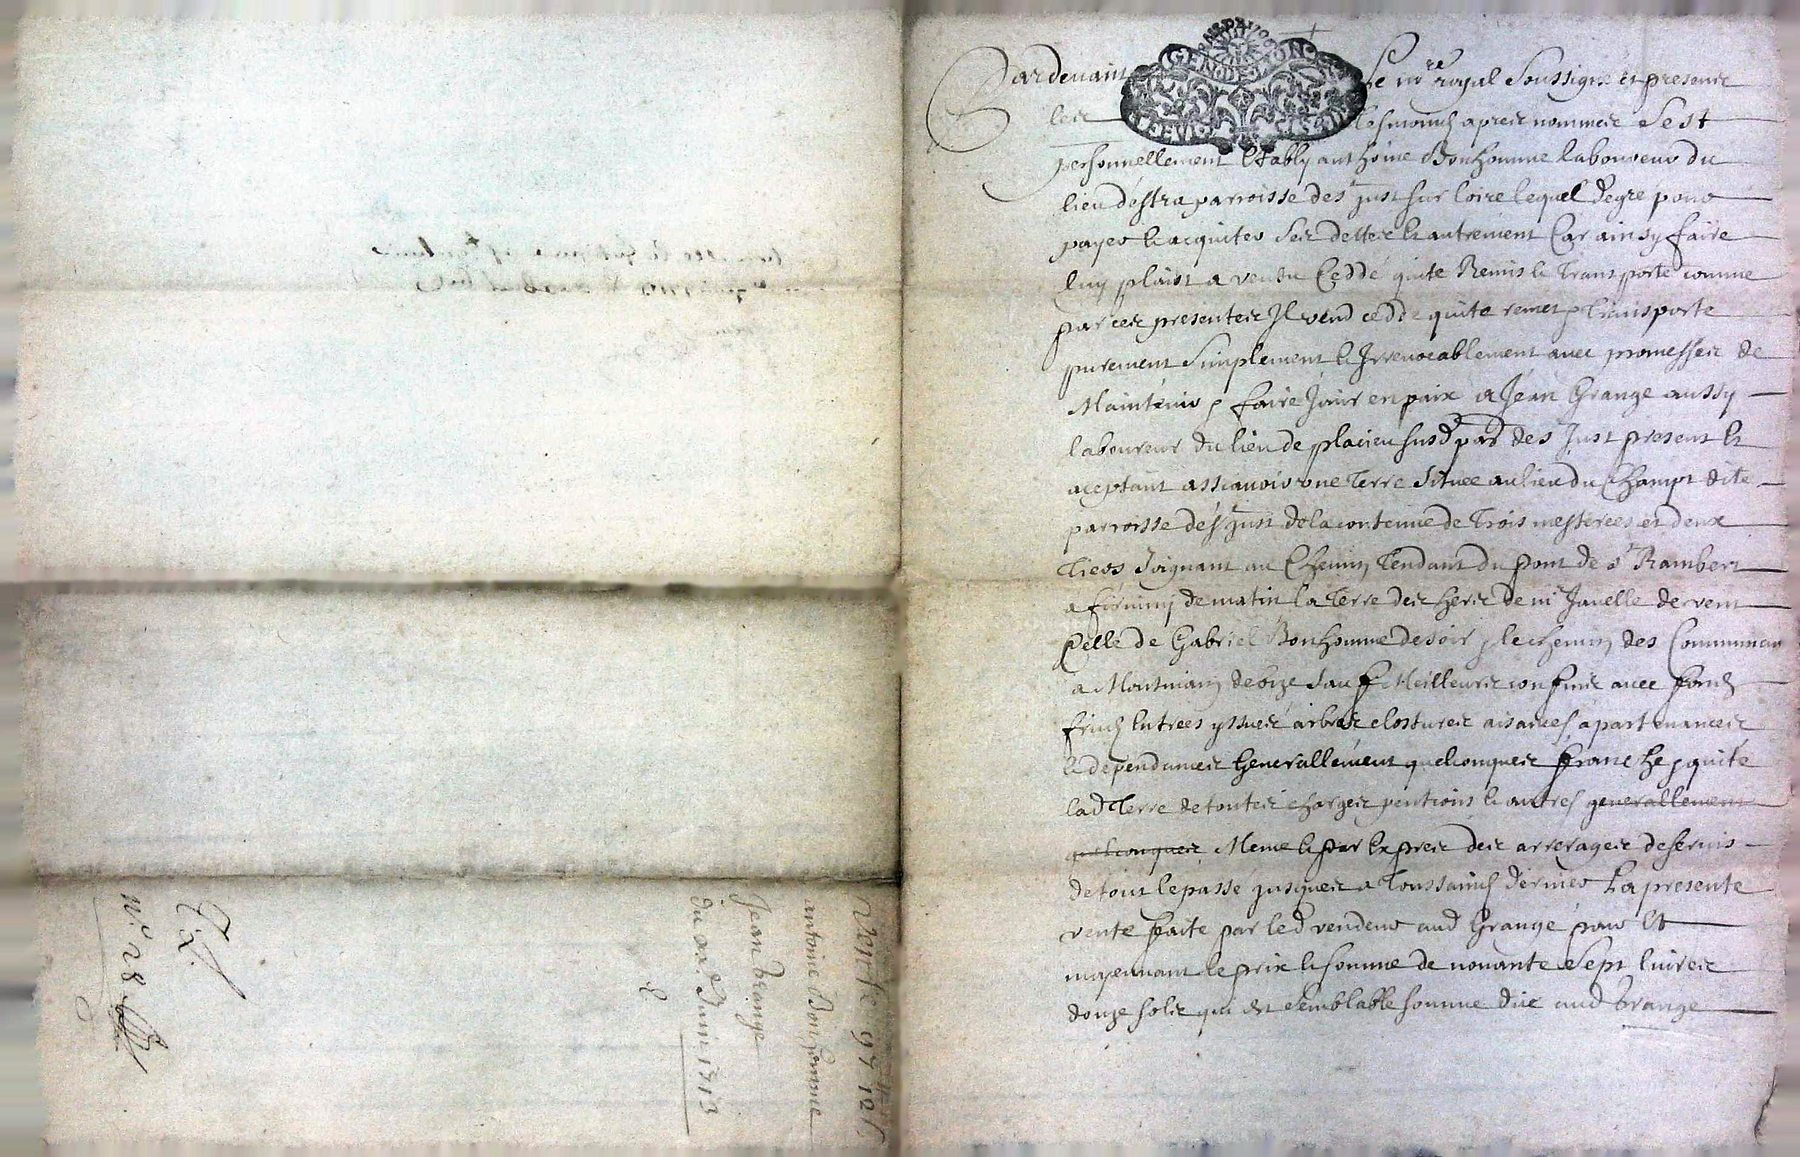 Pardevant Le nore royal Soussigne et presents
les tesmoins apres nommes Sest
personnellement Estably anthoine Bonhomme laboureur du
lieu destra parroisse de st just sur loire lequel de gre pour
payer & acquiter Ses dettes & autrement Car ainsy faire
luy plaist a vendu Cedde quité Remis & Transporté comme
par ces presentes Il vend cedde quite remet & transporte
purement Simplement & Irrevocablement avec promesses de
Maintenir & faire Jouir en paix a Jean Grange aussy
laboureur du lieu de placieu susd parr de st Just present Et
aceptant assçavoir une Terre Située au lieu du Champt dite
parroisse de st Just de la contenue de Trois mesterées et deux
Tiers Joignant au Chemin Tendant du pont de st Rambert
a firminy de matin la Terre des hers de mr Javelle de vent
Celle de Gabriel Bonhomme de soir & le chemin des Communeau
a Montmain de bize Sauf Meilleurs confins avec fonds
fruits Entrees yssues arbres clostures aisances apartenances
& dependances Generallement quelconques franche & quite
lad Terre de toutes charges pentions & autres generallement
quelconques Meme & par Expres des arrerages de servis
de tout le passé jusques a Toussaints dernier La presente
vente faite par led vendeur aud Grange pour Et
moyennant le prix & somme de nonante Sept livres
douze sols qui est semblable somme due aud Grange
Vente 97 12 s
antoine Bonhomme
Jean Grange
du 2e Juin 1713
n° 28